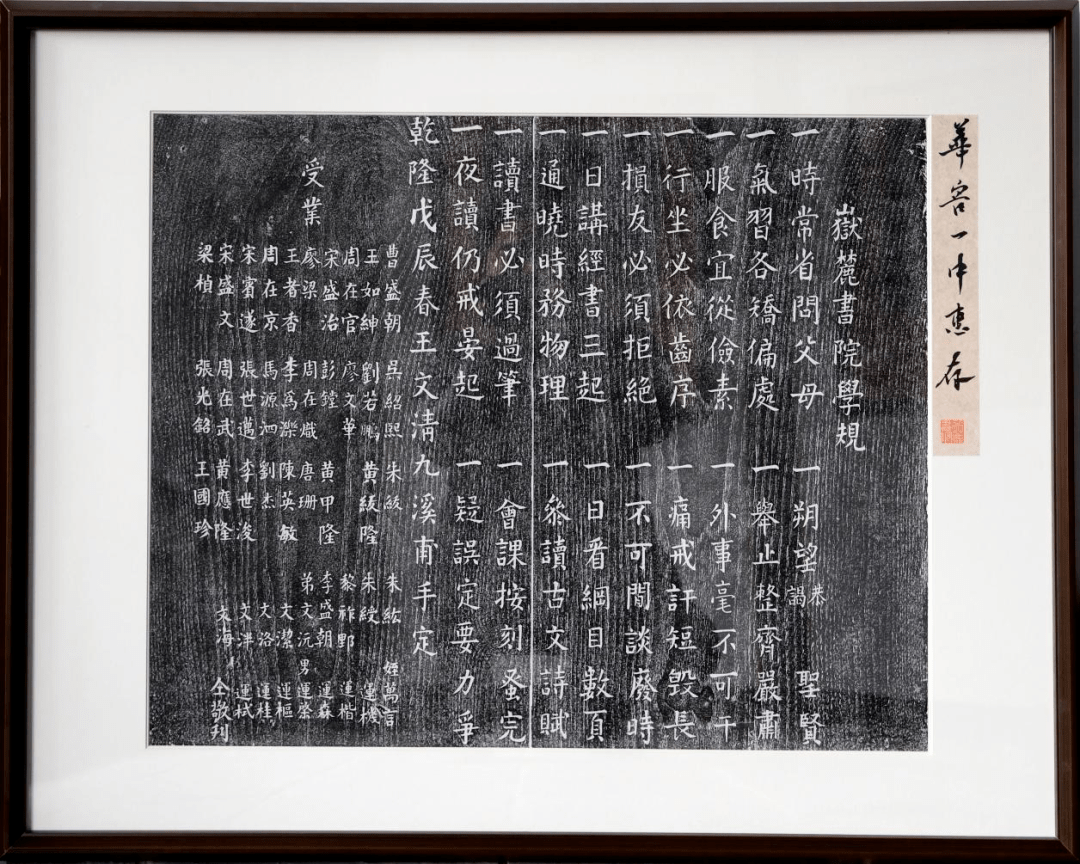 華容一中惠存
嶽麓書院學規
一時常省問父母 一朔望恭謁 聖賢
一氣習各矯偏處 一舉止整齊嚴肅
一服食宜從儉素 一外事毫不可干
一行坐必依齒序 一痛戒訐短毀長
一損友必須拒絕 一不可閒談廢時
一日講經書三起 一日看綱目數頁
一通曉時務物理 一叅讀古文詩賦
一讀書必須過筆 一會課按刻蚤完
一夜讀仍戒晏起 一疑誤定要力爭
乾隆戊辰春王文清九溪甫手定
受業
曹盛朝 吳紹熙 朱紱 朱紘 姪萬言
王如紳 劉若鵬 黃緩隆 朱綬 運機
周在官 廖文華 黎祚野 運楷
宋盛治 彭鏜 黃甲隆 李盛朝 運森
廖梁 周在熾 唐珊 弟文沅 男運榮
王者香 李為濼 陳英敏 文潔 運樞
周在京 馬源泗 劉杰 文洛 運桂
宋賓遂 張世邁 李世浚 文泮 運栻
宋盛文 周在武 黃應隆 文海 仝敬刊
梁楨 張光銘 王國珍